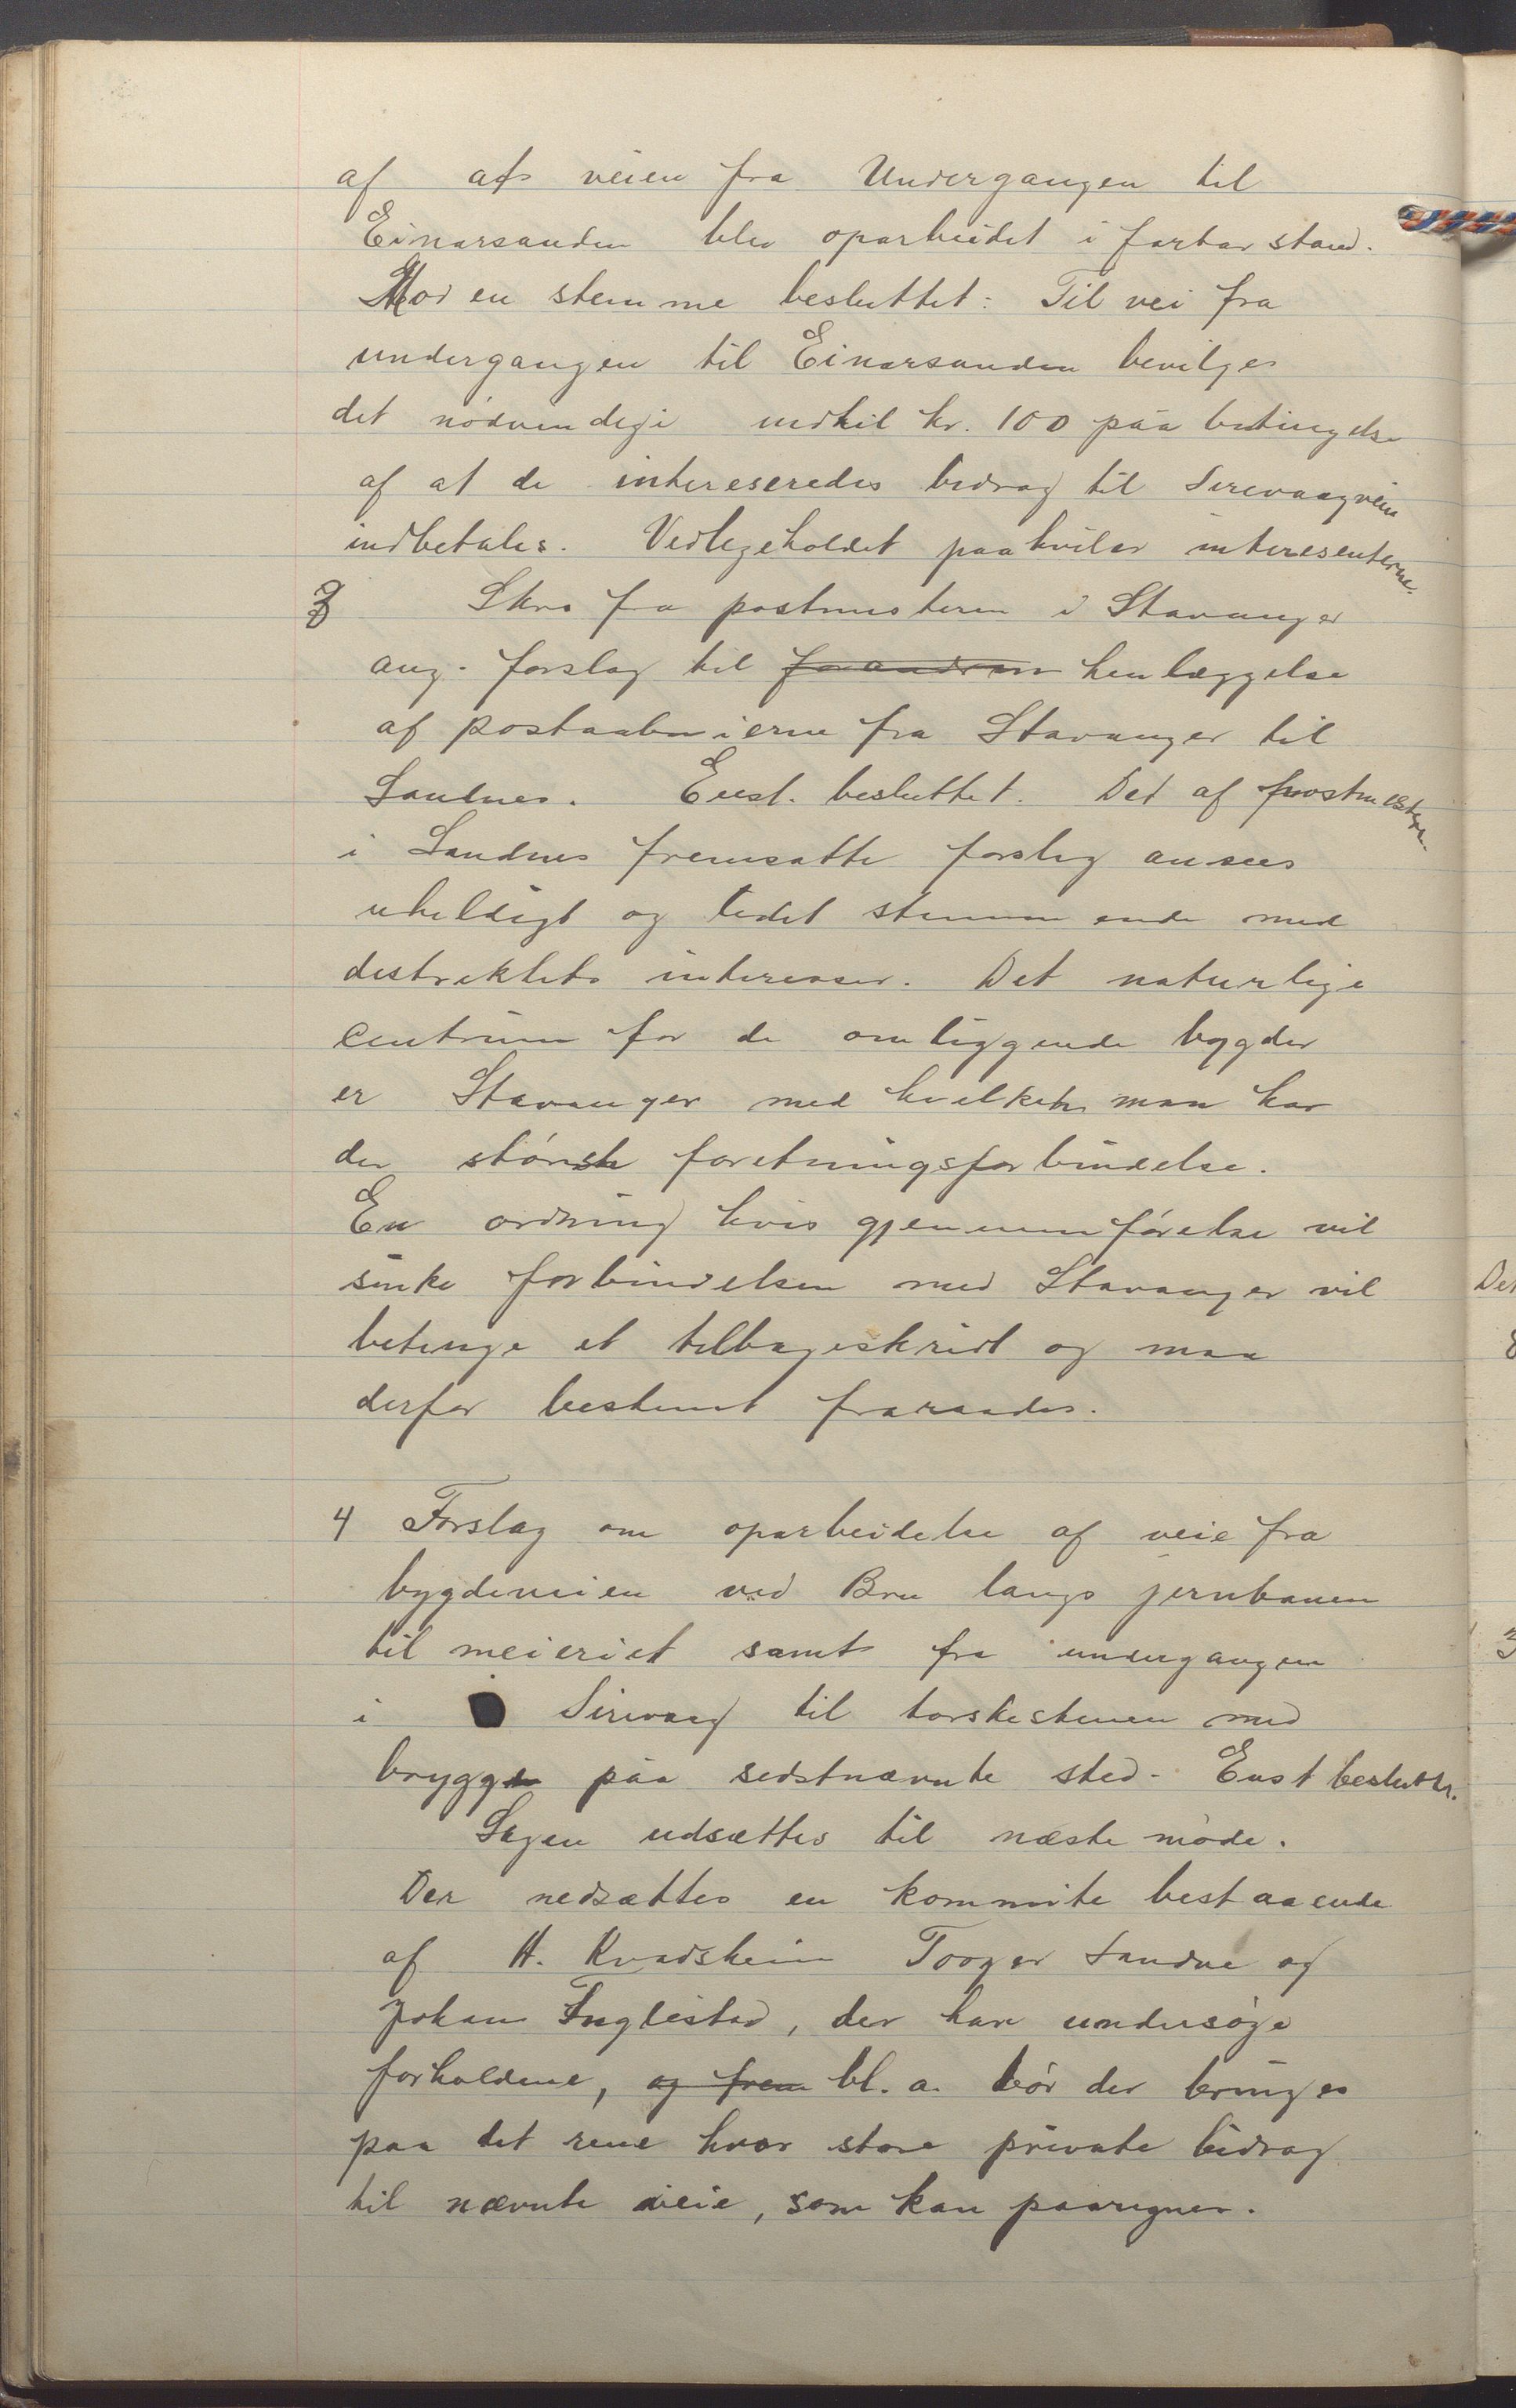 af at veien fra Undergangen til
Einarsanden blev oparbeidet i farbar stand.
Mod en stemme besluttet: Til vei fra
undergangen til Einarsanden bevilges
det nødvendige indtil kr. 100 paa betingelse
af at de intereseredes bidrag til Sirevaagveien
indbetales. Vedligeholdet paahviler interesenterne.
3 Skr. fra postmesteren i Stavanger
ang. forslag til forandren henlæggelse
af postaabnierne fra Stavanger til
Sandnes. Enst. besluttet. Det af postmesteren
i Sandnes fremsatte forslag ansees
uheldigt og lidet stemmende med
destriktets interesser. Det naturlige
centrum for de omliggende bygder
er Stavanger med hvilken man har
den største foretningsforbindelse.
En ordning hvis gjennemførelse vil
sinke forbindelsen med Stavanger vil
betinge et tilbageskridt og maa
derfor bestemt fraraades.
4 Forslag om oparbeidelse af veie fra
bygdeveien ved Bru langs jernbanen
til meieriet samt fra undergangen
i Sirevaag til torskestenen med
brygge paa sidstnævnte sted. Enst besluttet.
Sagen udsættes til næste møde.
Der nedsættes en kommite bestaaende
af A. Kvadsheim Tooger Sandve og
Johan Inglestad, der har undersøge
forholdene, og frem bl. a. bør der bringes
paa det rene hvor store private bidrag
til nævnte veie, som kan paaregnes.
Det
3